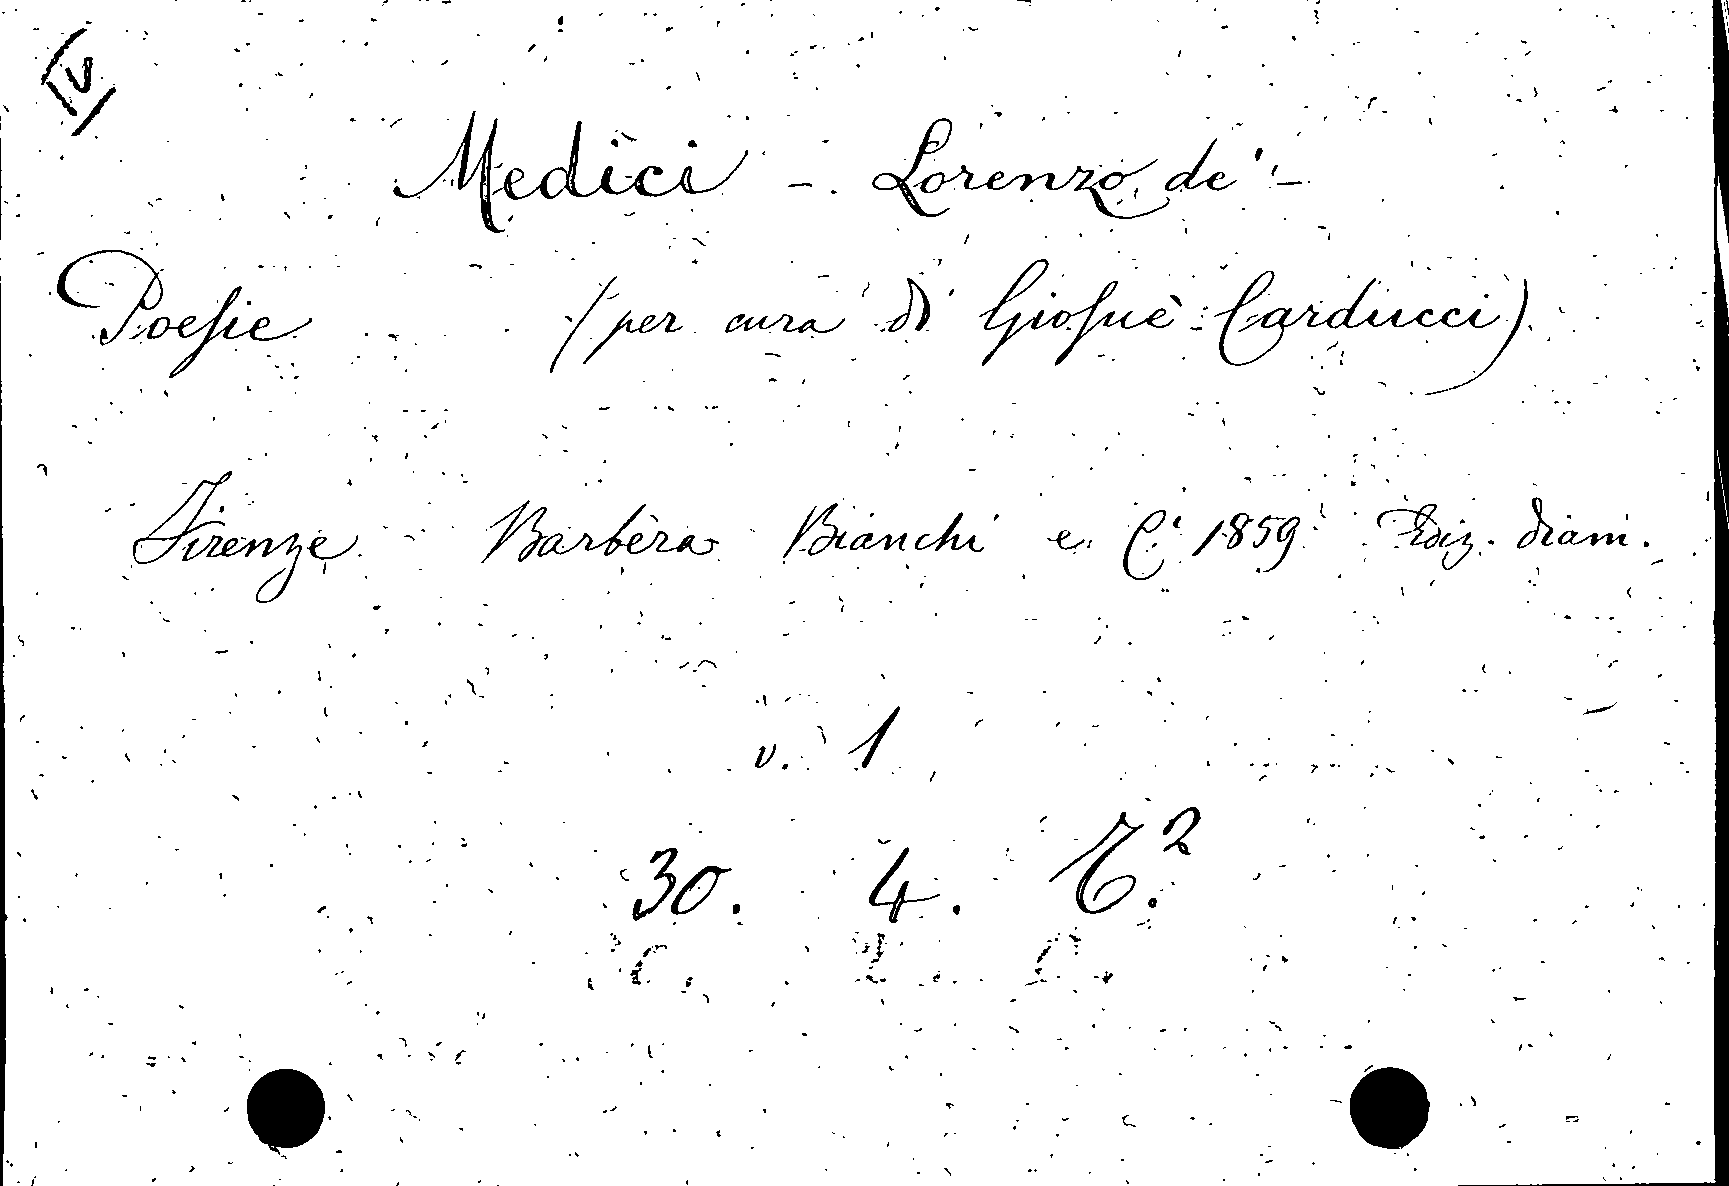 IV
Medici - Lorenzo de' -
Poesie (per cura di Giosuè Carducci)
Firenze Barbèra Bianchi e C.i 1859 Ediz. diam.
v. 1
30. 4.